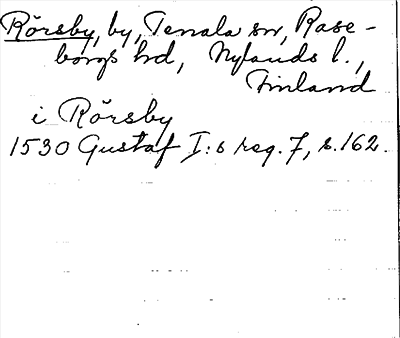 Rörsby, by, Tenala sn, Rase-
borgs hd, Nylands l.,
Finland
i Rörsby
1530 Gustaf I:s reg. 7, s. 162.